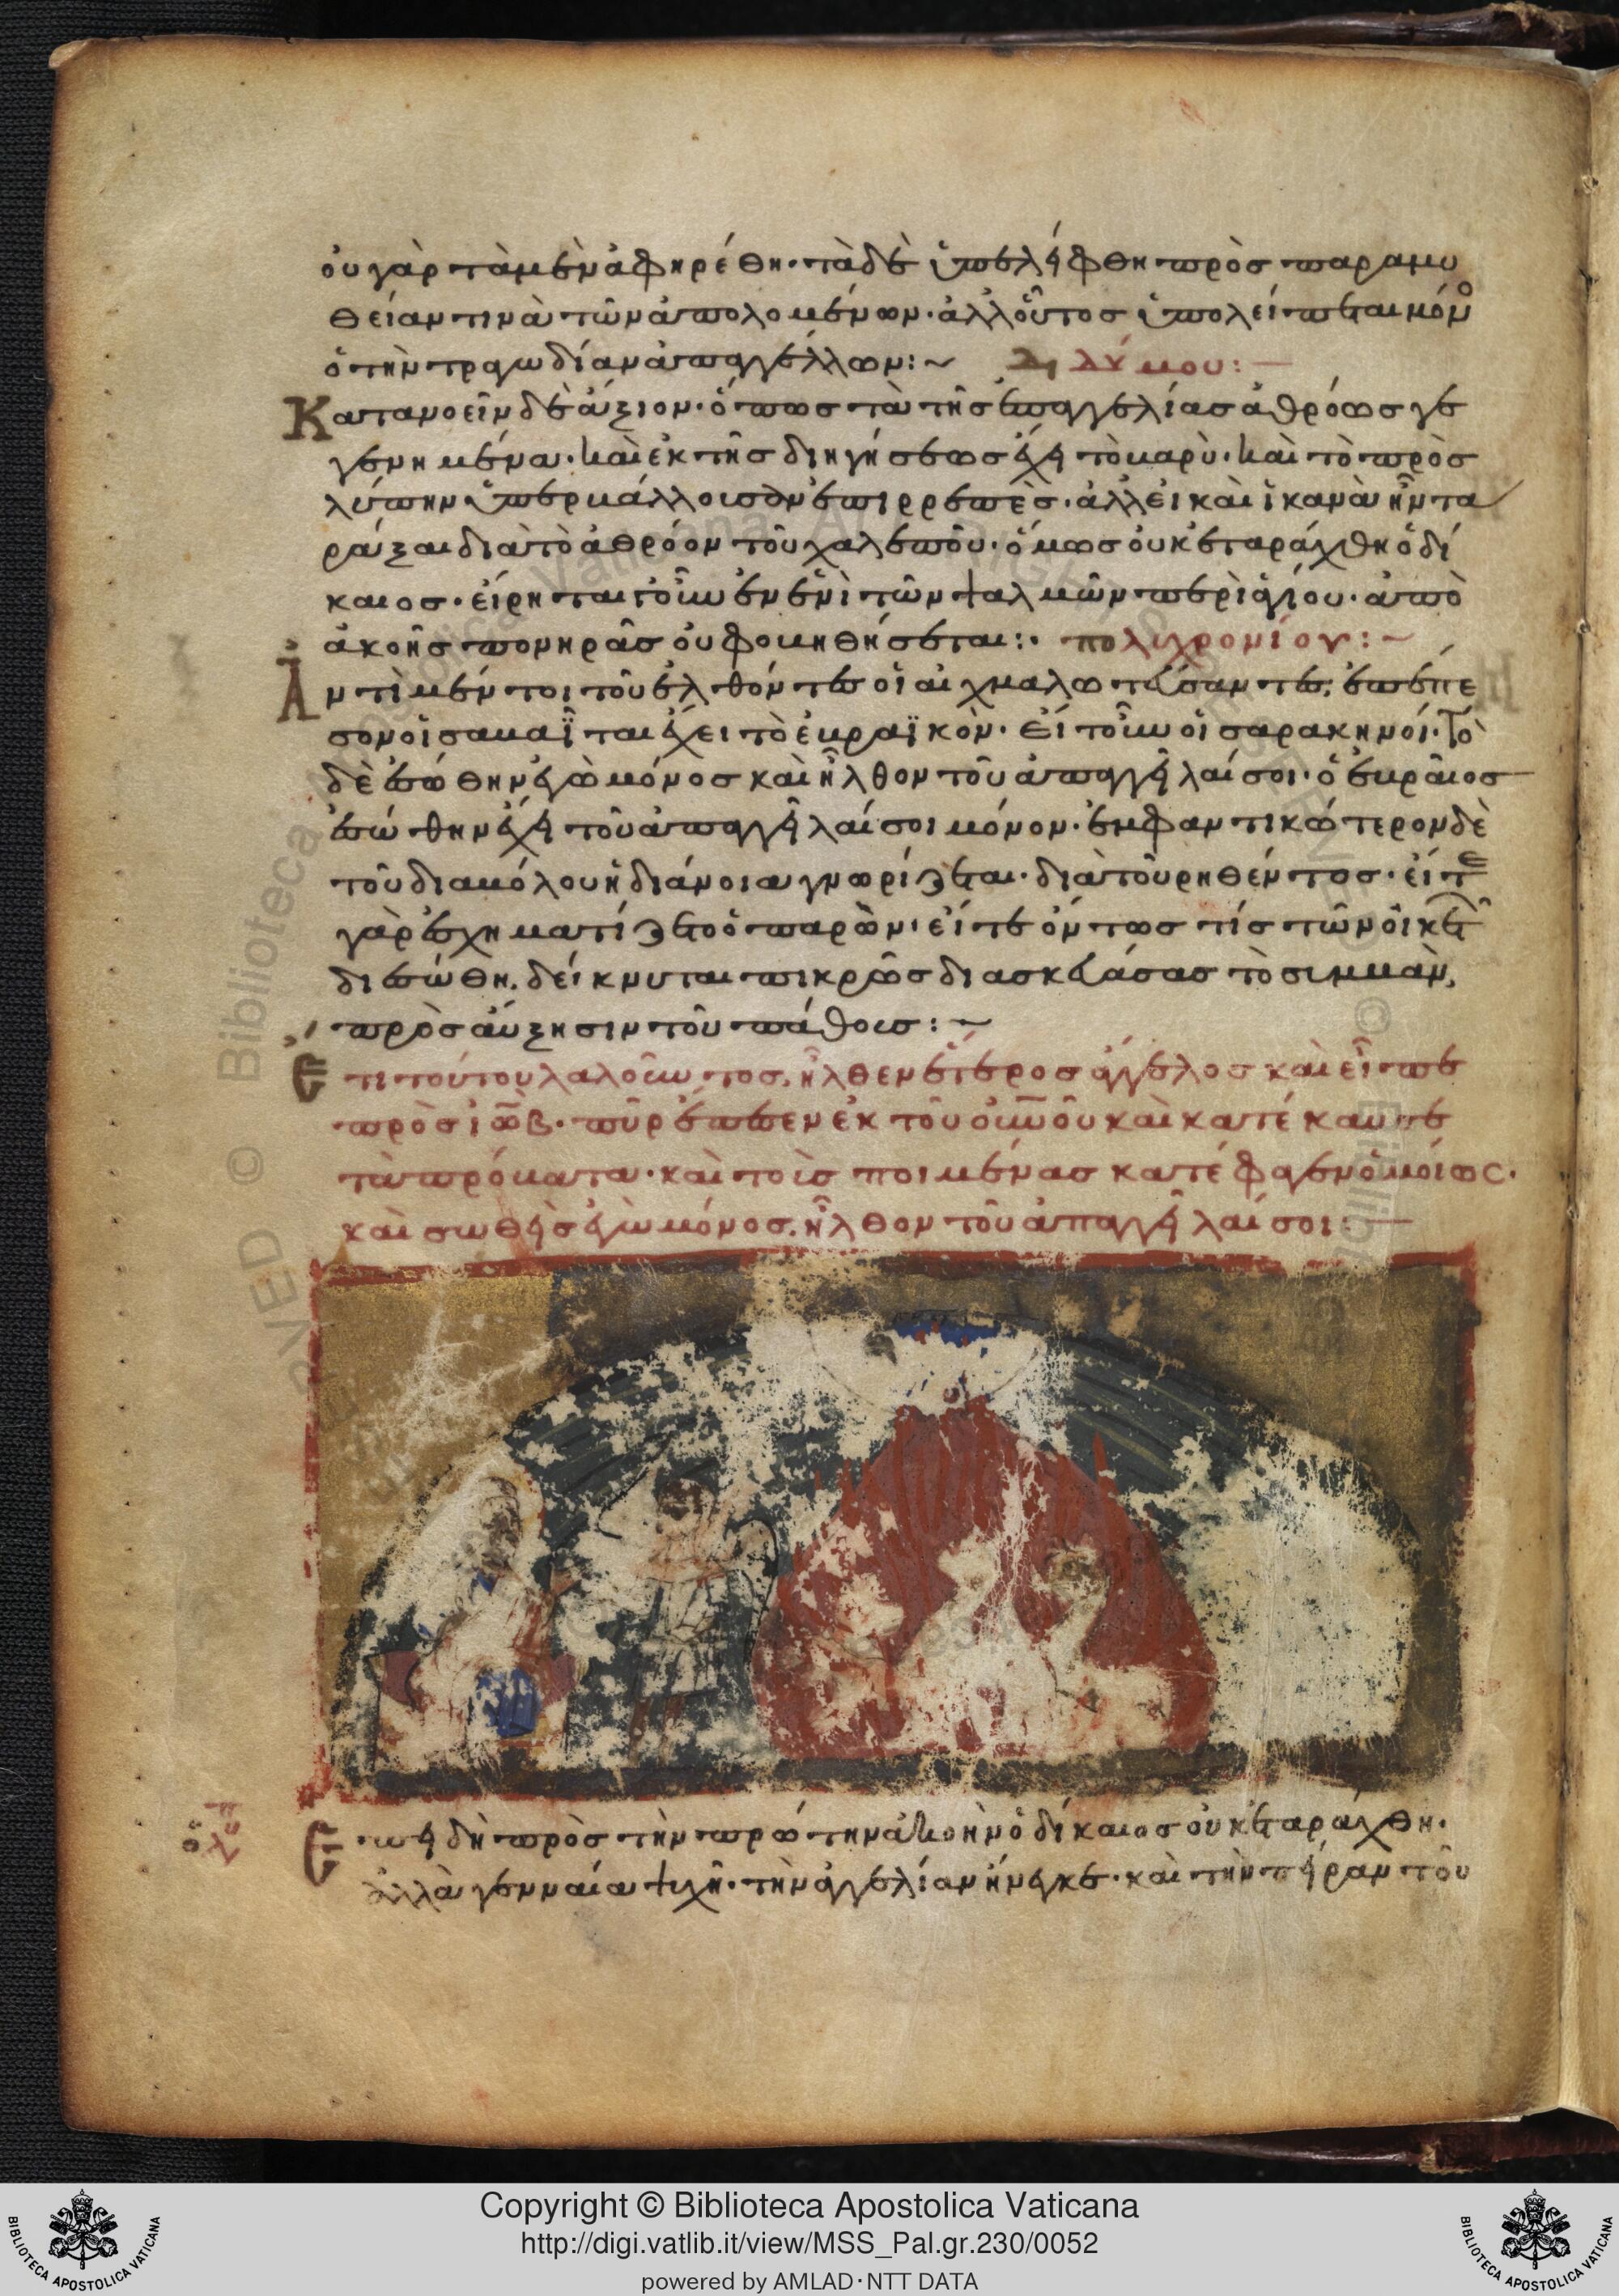 οὐ γὰρ τὰ μὲν ἀφηρέθη· τὰ δὲ ὑπελήφθη πρὸς παραμυ
θείαν τινὰ τῶν ἀπολομένων· ἀλλ' οὗτος ὑπολείπεται μόνο
ὁ τὴν τραγωδίαν ἀπαγγέλλων:~ Διδύμου:
Κατανοεῖν δὲ ἄξιον· ὅπως τὰ τῆς ἐπαγγελίας ἀθρόως γε
γενημένα· καὶ ἐκ τῆς διηγήσεως ἔχει τὸ βαρὺ· καὶ τὸ πρὸς
λύπην ἀλλ' εἰ καὶ ἱκανὰ ἦν τα
ράξαι διὰ τὸ ἀθρόον τοῦ χαλεποῦ· ὅμως οὐκ ἐταράχθη ὁ δί
καιος· εἴρηται γοῦν ἐν ἑνὶ τῶν ψαλμῶν περὶ ἁγίου· ἀπὸ
ἀκοῆς πονηρᾶς οὐ φοβηθήσεται:· πολυχρονίου:~
Ἀντὶ μέντοι τοῦ ἐλθόντες οἱ αἰχμαλωτεύσαντες, ἐπέπε
σον οἱ σαβαῖται ἔχει τὸ ἑβραϊκὸν· εἰ τοῦν οἱ σαρακηνοί· Τὸ
δὲ ἐσώθην ἐγὼ μόνος καὶ ἦλθον τοῦ ἀπαγγεῖλαί σοι· ὁ ἑβραῖος
ἐσώθην ἔχει τοῦ ἀπαγγεῖλαί σοι μόνον· ἐμφαντικώτερον δὲ
τοῦ διαβόλου ἡ διάνοια γνωρίζεται· διὰ τοῦ ῥηθέντος· εἴτε
γὰρ ἐσχηματίζετο ὁ παρὼν· εἴτε ὄντως τίς τῶν οἰκετῶν
διεσώθη, δείκνυται πικρῶς διασκευάσας τὸ συμβὰν,
πρὸς αὔξησιν τοῦ πάθους:~
Ἔτι τούτου λαλοῦντος, ἦλθεν ἕτερος ἄγγελος καὶ εἶπε
πρὸς ἰὼβ· πῦρ ἔπεσεν ἐκ τοῦ οὐνοῦ καὶ κατέκαυσε
τὰ πρόβατα· καὶ τοὺς ποιμένας κατέφαγεν ὁμοίως·
καὶ σωθεὶς ἐγὼ μόνος, ἦλθον τοῦ ἀπαγγεῖλαί σοι:
Ἐπειδὴ πρὸς τὴν πρώτην ἀκοὴν ὁ δίκαιος οὐκ ἐταράχθη·
ἀλλὰ γενναία ψυχῆ· τὴν ἀγγελίαν ἤνεγκε· καὶ τὴν πεῖραν τοῦ
Copyright © Biblioteca Apostolica Vaticana
http://digi.vatlib.it/view/MSS_Pal.gr.230/0052
powered by AMLAD·NTT DATA
BIBLIOTECA APOSTOLICA VATICANA
BIBLIOTECA APOSTOLICA VATICANA